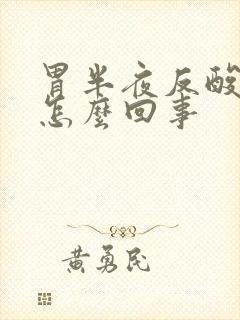 胃半夜反酸
怎麼回事
黃勇民